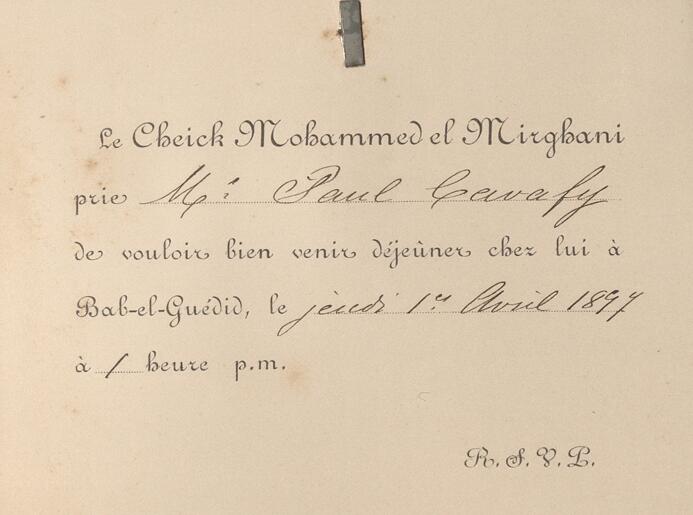 Le Cheick Mohammed el Mirghani
prie Mr. Paul Cavafy
de vouloir bien venir déjeûner chez lui à
Bab-el-Guédid, le jeudi 1er Avril 1897
à 1 heure p.m.
R. S. V. P.